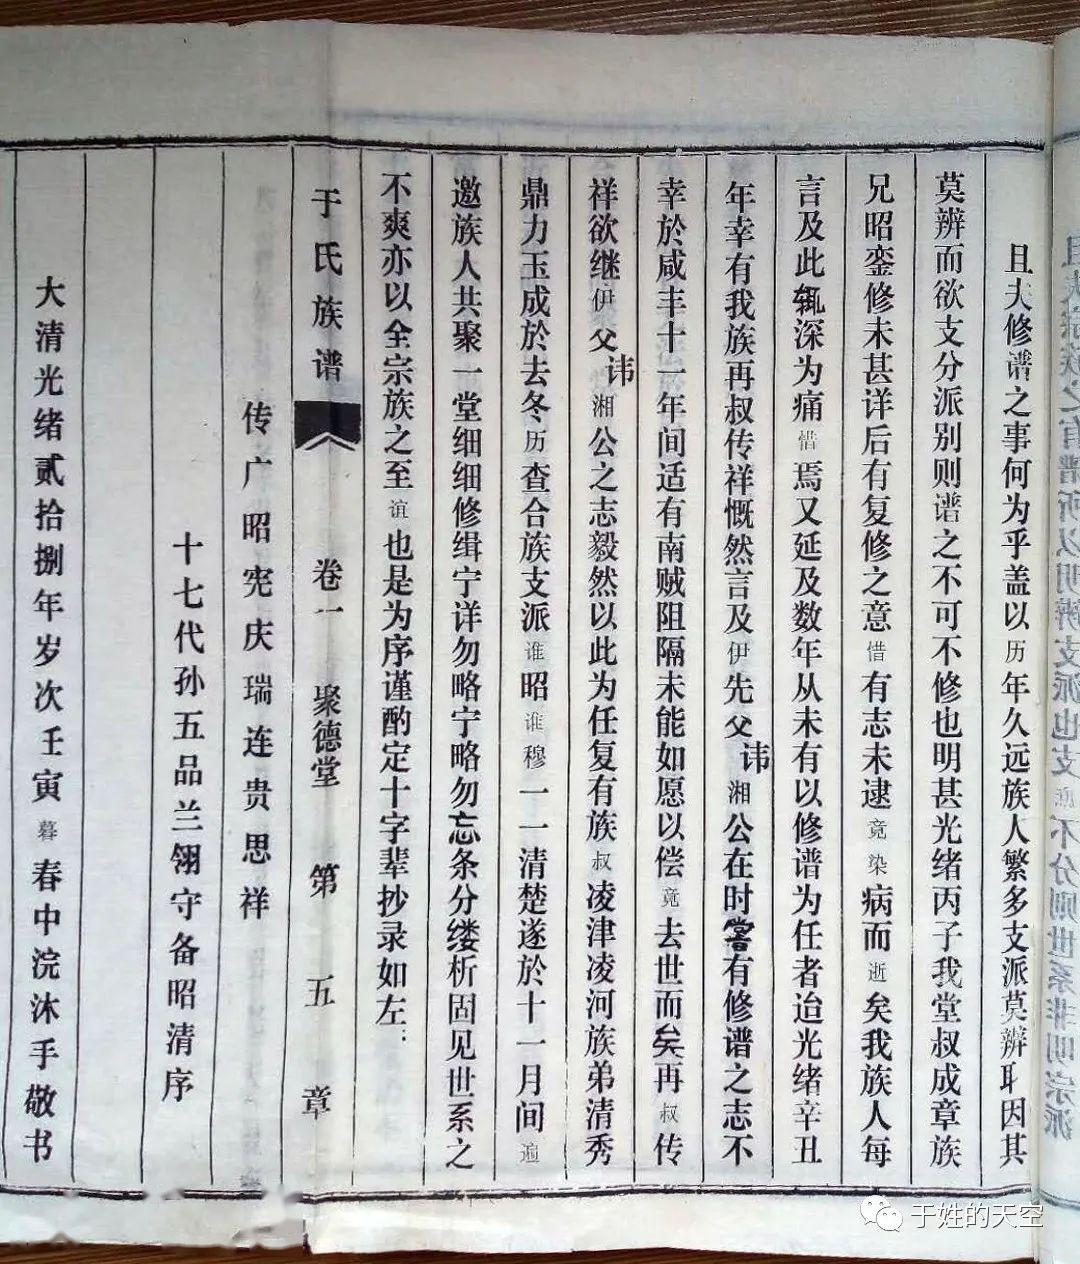 且夫修谱之事何为乎盖以历年久远族人繁多支派莫辨耳因其
莫辨而欲支分派别则谱之不可不修也明甚光绪丙子我堂叔成章族
兄昭銮修未甚详后有复修之意惜有志未逮竟染病而逝矣我族人每
言及此辄深为痛惜焉又延及数年从未有以修谱为任者迨光绪辛丑
年幸有我族再叔传祥慨然言及伊先父讳湘公在时尝有修谱之志不
幸於咸丰十一年间适有南贼阻隔未能如愿以偿竟去世而矣再叔传
祥欲继伊父讳湘公之志毅然以此为任复有族叔凌津凌河族弟清秀
鼎力玉成於去冬历查合族支派谁昭谁穆一一清楚遂於十一月间遍
邀族人共聚一堂细细修缉宁详勿略宁略勿忘条分缕析固见世系之
不爽亦以全宗族之至谊也是为序谨酌定十字辈抄录如左：
于氏族谱 卷一 聚德堂 第五章
传广昭宪庆瑞连贵思祥
十七代孙五品兰翎守备昭清序
大清光绪贰拾捌年岁次壬寅暮春中浣沐手敬书
于姓的天空